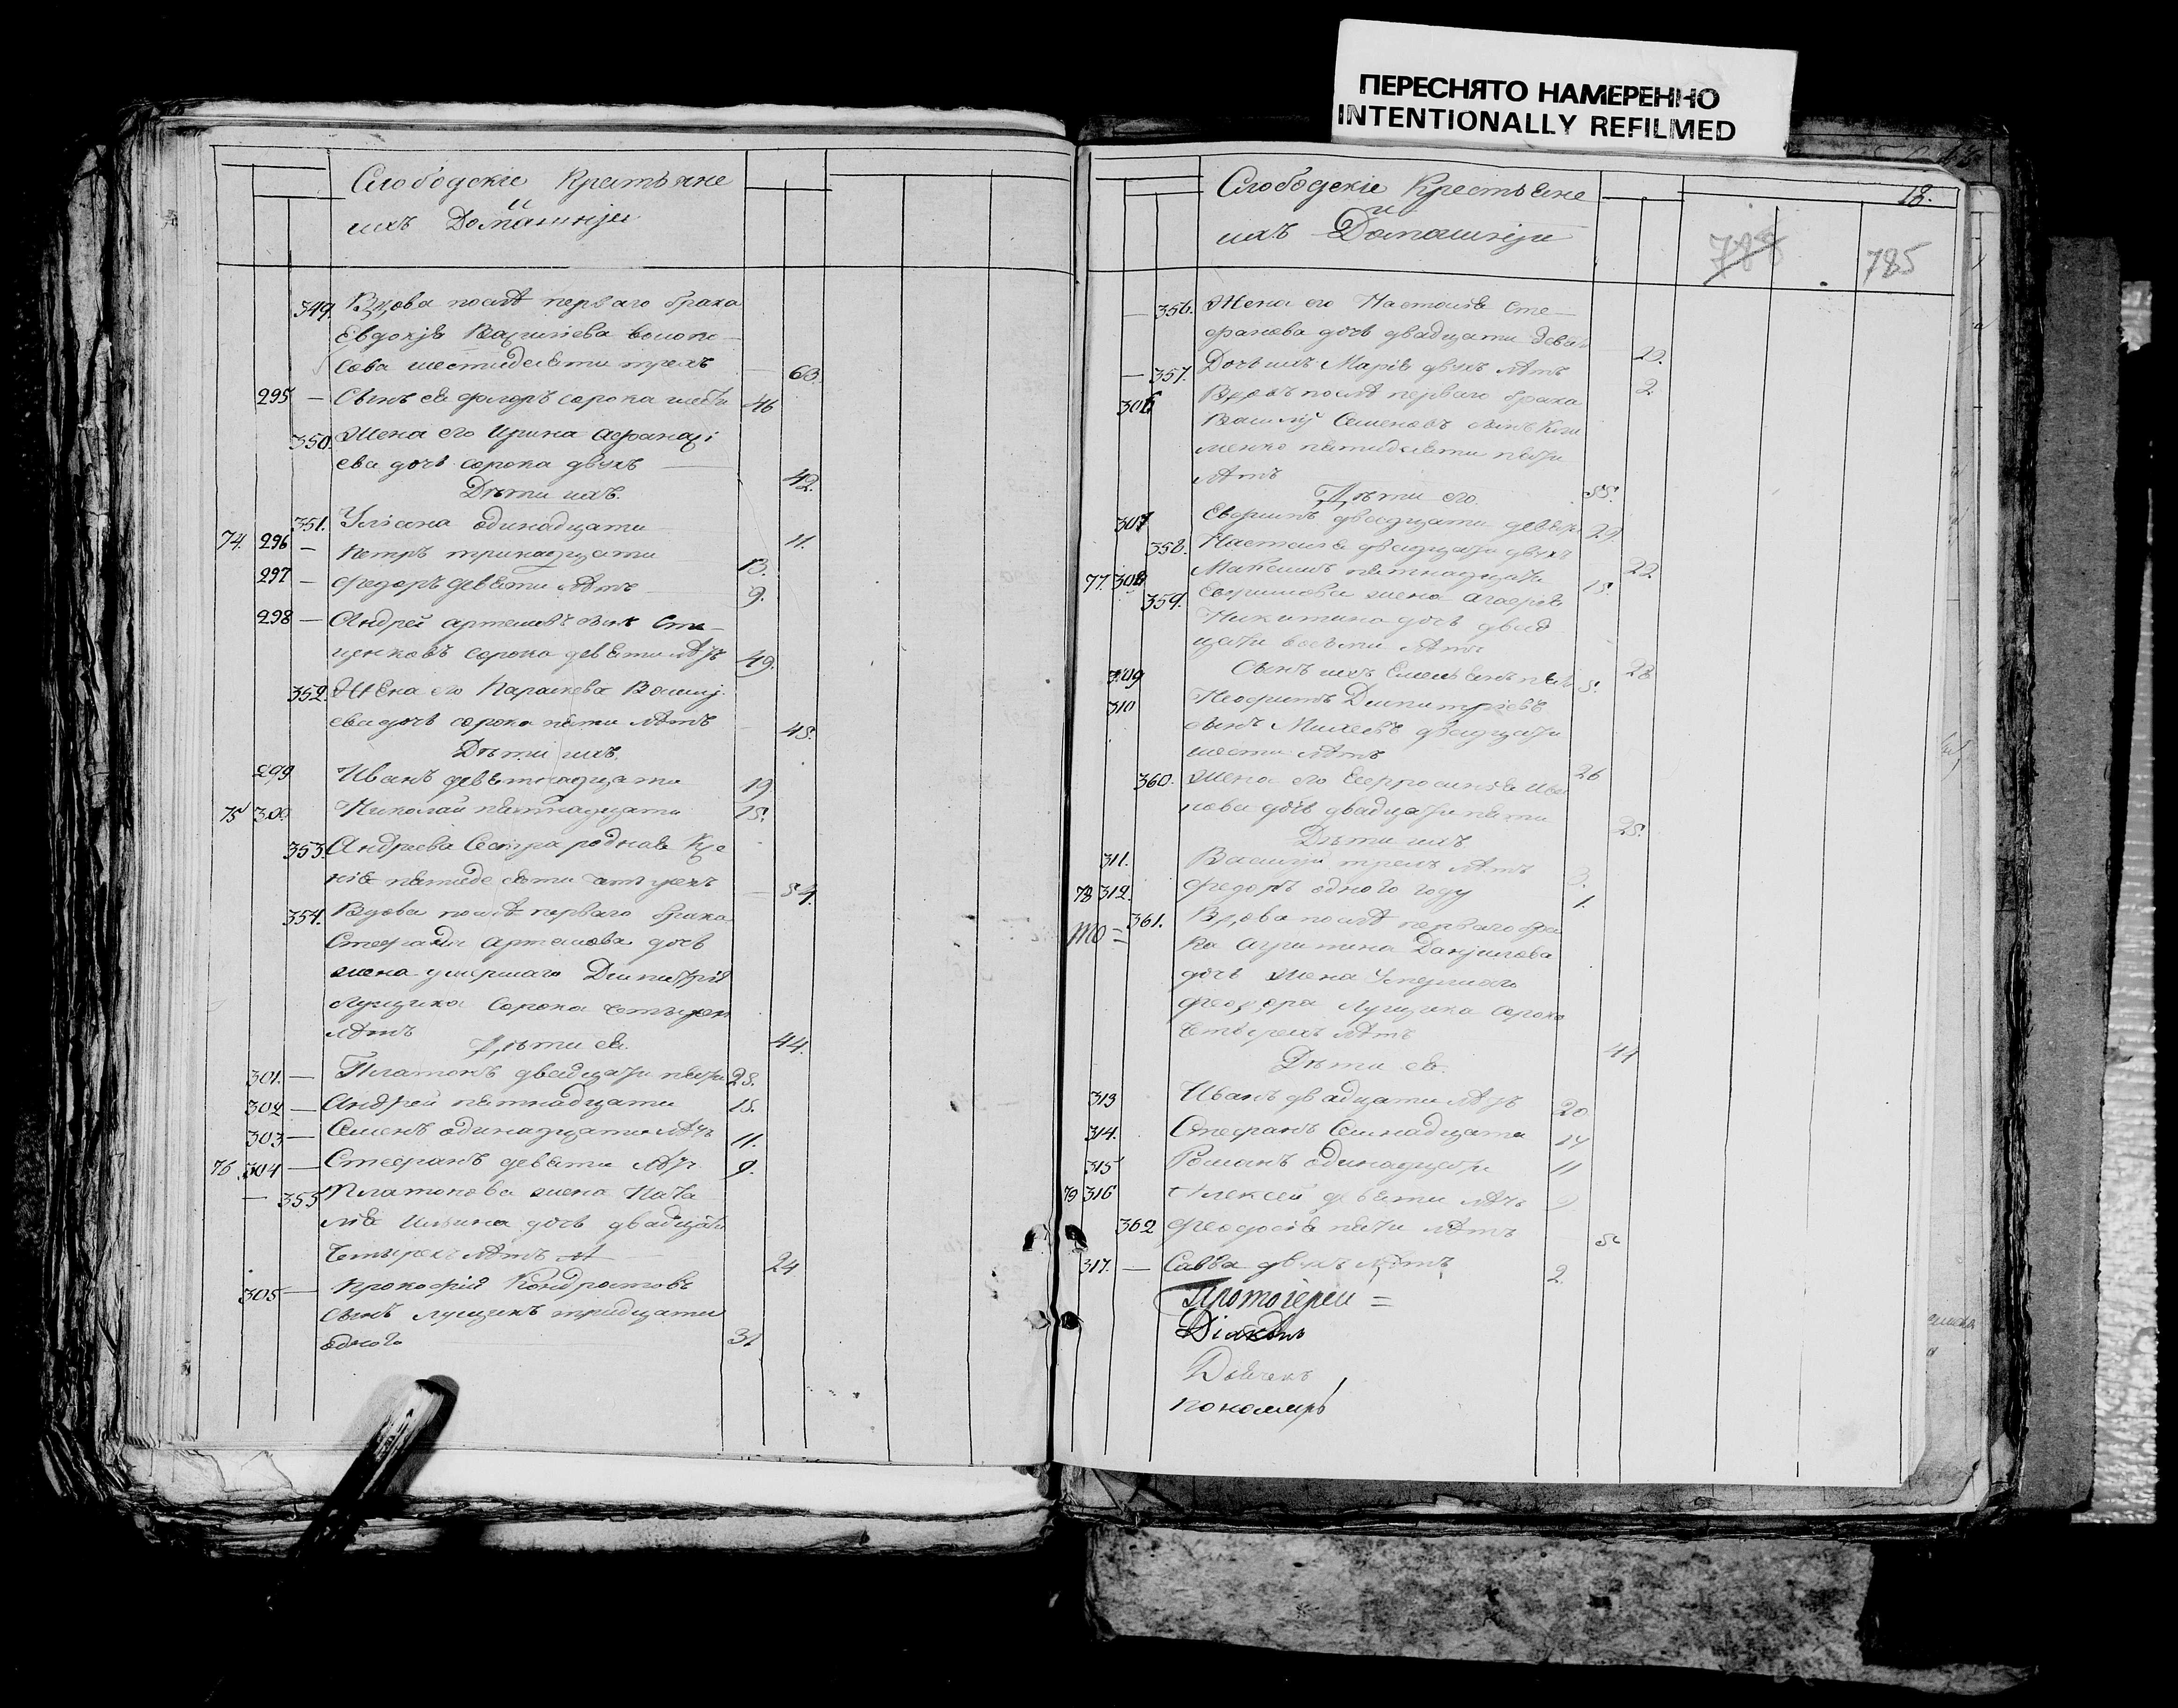 ПЕРЕСНЯТО НАМЕРЕННО
INTENTIONALLY REFILMED
Слободскіе Крестьяне
и
ихъ Домашнји
349. Вдова послѣ перваго брака
Евдокія Василіева
шестидесяти трехъ 63.
295 — Сынъ ея Федоръ сорока шести 46
350. Жена его Ирина Афанасі
ева дочь сорока двухъ 42.
Дѣти ихъ.
351. Уліана одинадцати 11.
74. 296 — Петръ тринадцати 13.
297 — Федоръ девяти лѣтъ 9.
298 — Андрей Артемовъ сынъ Сте
ценковъ сорока девяти лѣтъ 49.
352. Жена его Параскева Василі
ева дочь сорока пяти лѣтъ 45.
Дѣти ихъ.
299 Иванъ девятнадцати 19
75 300. Николай пятнадцати 15.
353. Андреева Сестра родная Ксе
нія пятидесяти четырехъ 54.
354. Вдова послѣ перваго брака
Стефанида Артемова дочь
жена умершаго Димитрія
Лущика Сорока четырехъ
лѣтъ 44.
Дѣти ея.
301. — Платонъ двадцати пяти 25.
302 — Андрей пятнадцати 15.
303 — Семенъ одинадцати лѣтъ 11.
76 304 — Стефанъ девяти лѣтъ 9.
— 355 Платонова жена Ната
лія Ильина дочь двадцати
четырехъ лѣтъ 24
305 — Прокофій Кондратовъ
сынъ лущикъ тридцати
одного 31
18.
Слободскіе Крестьяне
и
ихъ Домашнји
788 785
— 356. Жена его Настасія Сте
фанова дочь двадцати двухъ 22.
— 357. Дочь ихъ Марія двухъ лѣтъ 2.
306 Вдовъ послѣ перваго брака
Василій Семеновъ сынъ
пятидесяти пяти
лѣтъ 55.
Дѣти его.
307 Евфимъ двадцати девяти 29.
358. Настасія двадцати двухъ 22.
77. 308 Максимъ пятнадцати 15.
359. Евфимова жена Агафія
Никитина дочь двад
цати восьми лѣтъ 28
309 Сынъ ихъ Емельянъ пяти 5.
310 Неофитъ Димитріевъ
сынъ Михеевъ двадцати
шести лѣтъ 26
360. Жена его Евфросинія Ива
нова дочь двадцати пяти 25.
Дѣти ихъ
311. Василій трехъ лѣтъ 3.
78 312. Федоръ одного году 1.
361. Вдова послѣ перваго бра
ка Агрипина Данјилова
дочь жена Умершаго
Феодора Лущика сорока
четырехъ лѣтъ 44
Дѣти ея.
313 Иванъ двадцати лѣтъ 20
314. Стефанъ Семнадцати 17
315 Романъ одинадцати 11
79 316 Алексей девяти лѣтъ 9
362 Феодосія пяти лѣтъ 5
317. — Савва двухъ лѣтъ 2.
Протоіерей =
Діаконъ
Дьячекъ
пономарь